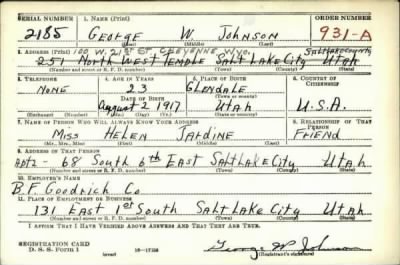 SERIAL NUMBER 1. NAME (Print) ORDER NUMBER
2185 GEORGE W. JOHNSON 931-A
(First) (Middle) (Last)
2. ADDRESS (Print) 100 W. 21 ST. CHEYENNE, WYO. SALT LAKE COUNTY
251 NORTH WEST TEMPLE SALT LAKE CITY UTAH
(Number and street or R. F. D. number) (Town) (County) (State)
3. TELEPHONE 4. AGE IN YEARS 5. PLACE OF BIRTH 6. COUNTRY OF CITIZENSHIP
NONE 23 GLENDALE
DATE OF BIRTH
AUGUST 2 1917 UTAH U.S.A.
(Exchange) (Number) (Mo.) (Day) (Yr.) (State or country)
7. NAME OF PERSON WHO WILL ALWAYS KNOW YOUR ADDRESS 8. RELATIONSHIP OF THAT PERSON
MISS HELEN JARDINE FRIEND
(Mr., Mrs., Miss) (First) (Middle) (Last)
9. ADDRESS OF THAT PERSON
APT 2 - 68 SOUTH 6th EAST SALT LAKE CITY UTAH
(Number and street or R. F. D. number) (Town) (County) (State)
10. EMPLOYER'S NAME
B.F. GOODRICH CO
11. PLACE OF EMPLOYMENT OR BUSINESS
131 EAST 1st SOUTH SALT LAKE CITY UTAH
(Number and street or R. F. D. number) (Town) (County) (State)
I AFFIRM THAT I HAVE VERIFIED ABOVE ANSWERS AND THAT THEY ARE TRUE.
REGISTRATION CARD
D. S. S. Form 1 16-17105 George W Johnson
(over) (Registrant's signature)